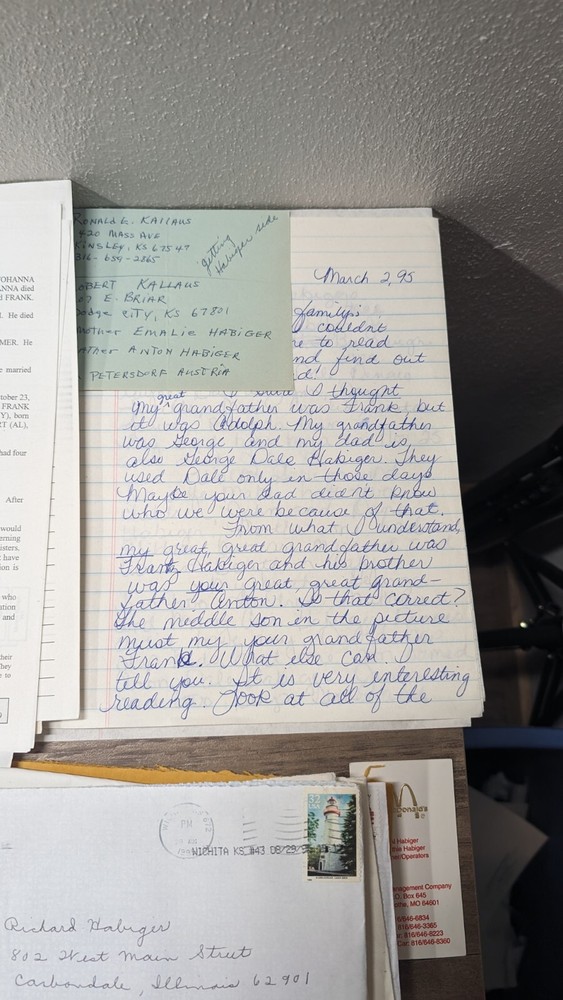 OHANNA
ANNA died
d FRANK.
. He died
MER. He
e married
tober 23,
FRANK
Y), born
RT (AL),
had four
After
would
erning
isters,
have
on is
who
ation
and
their
They
e to
RONALD E. KALLAUS
420 MASS AVE
KINSLEY, KS 67547
316-659-2865
getting
Habiger side
OBERT KALLAUS
07 E. BRIAR
Dodge CITY, KS 67801
Mother EMALIE HABIGER
ATHER ANTON HABIGER
PETERSDORF AUSTRIA
March 2, 95
family's
couldnt
e to read
nd find out
d!
I thought
My great grandfather was Frank, but
it was Adolph. My grandfather
was George and my dad is
also George Dale Habiger. They
used Dale only in those days
Maybe your dad didn't know
who we were because of that.
From what I understand,
my great, great grandfather was
Frank Habiger and his brother
was your great great grand-
father Anton. Is that correct?
The meddle son in the picture
must my your grandfather
Frank. What else can I
tell you. It is very interesting
reading. Look at all of the
PM
WICHITA KS #43 08/29/95
32
USA
Richard Habiger
802 West Main Street
Carbondale, Illinois 62901
Donald's
Habiger
Habiger
Operators
anagement Company
O. Box 645
MO 64601
816/646-6834
816/646-3365
816/646-6223
Car: 816/646-8360